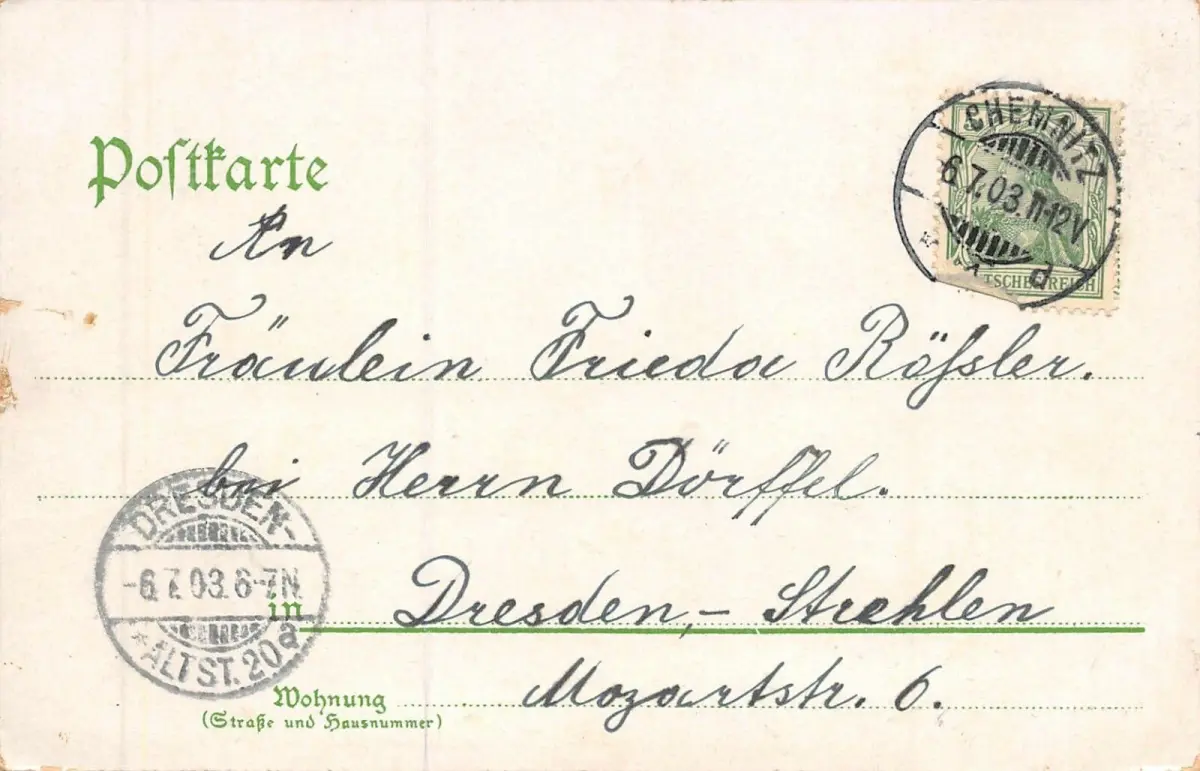 Postkarte
CHEMNITZ
6.7.03.11-12V.
d
DEUTSCHES REICH
An
Fräulein Frieda Rößler.
bei Herrn Dörffel.
DRESDEN-
-6.7.03.6-7N.
*ALTST.20a
in Dresden,- Strehlen
Wohnung Mozartstr. 6.
(Straße und Hausnummer)